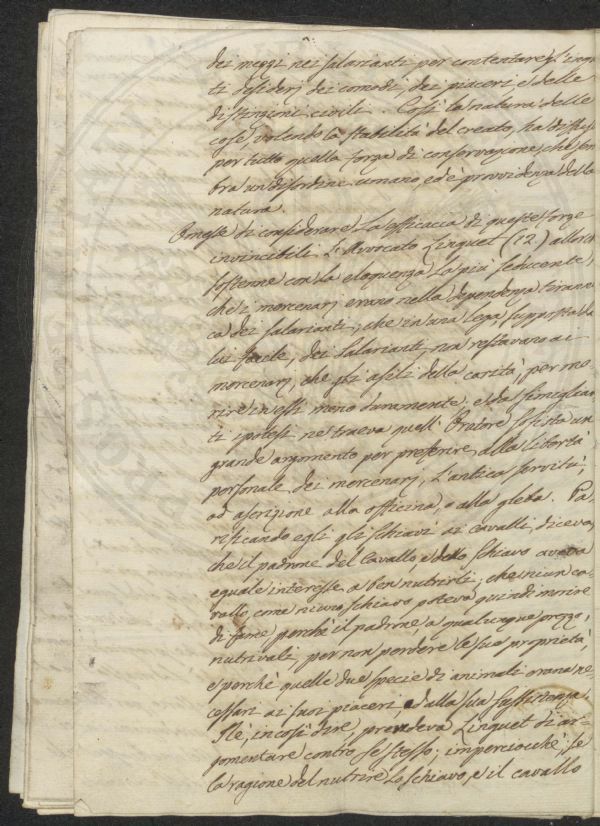 dei mezzi nei salarianti per contentare gl'infini
ti desiderj dei comodi, dei piaceri, e delle
distinzioni civili. Così la natura delle
cose, volendo la stabilità del creato, ha diffuso
per tutto quella forza di conservazione, che sem
bra un disordine umano, ed è provvidenza della
natura.
Omesse di considerare la efficacia di queste forze
invincibili l'Avvocato Linguet (12.) allorchè
sostenne con la eloquenza la più seducente,
che i mercenarj erano nella dependenza tiranni
ca dei salarianti; che in una lega, supposta da
lui facile, dei salarianti, non restavano ai
mercenarj, che gli asili della carità, per mo
rire in essi meno duramente: e da simiglian
ti ipotesi ne traeva quell'Oratore sofista un
grande argomento per preferire, alla libertà
personale dei mercenarj, l'antica servitù,
od ascrizione alla officina, o alla gleba. Pa
rificando egli gli schiavi ai cavalli, diceva,
che il padrone del Cavallo, e dello schiavo aveva
eguale interesse a ben nutrirli; che niun ca
vallo, come niuno schiavo poteva quindi morire
di fame, perchè il padrone, a qualunque prezzo,
nutrivali, per non perdere le sue proprietà,
e perchè quelle due specie di animali erano ne
cessarj ai suoi piaceri, ed alla sua sussistenza.
Nè, in così dire, prendeva Linguet di ar
gomentare contro se stesso; imperciocchè, se
la ragione del nutrire lo schiavo, e il cavallo